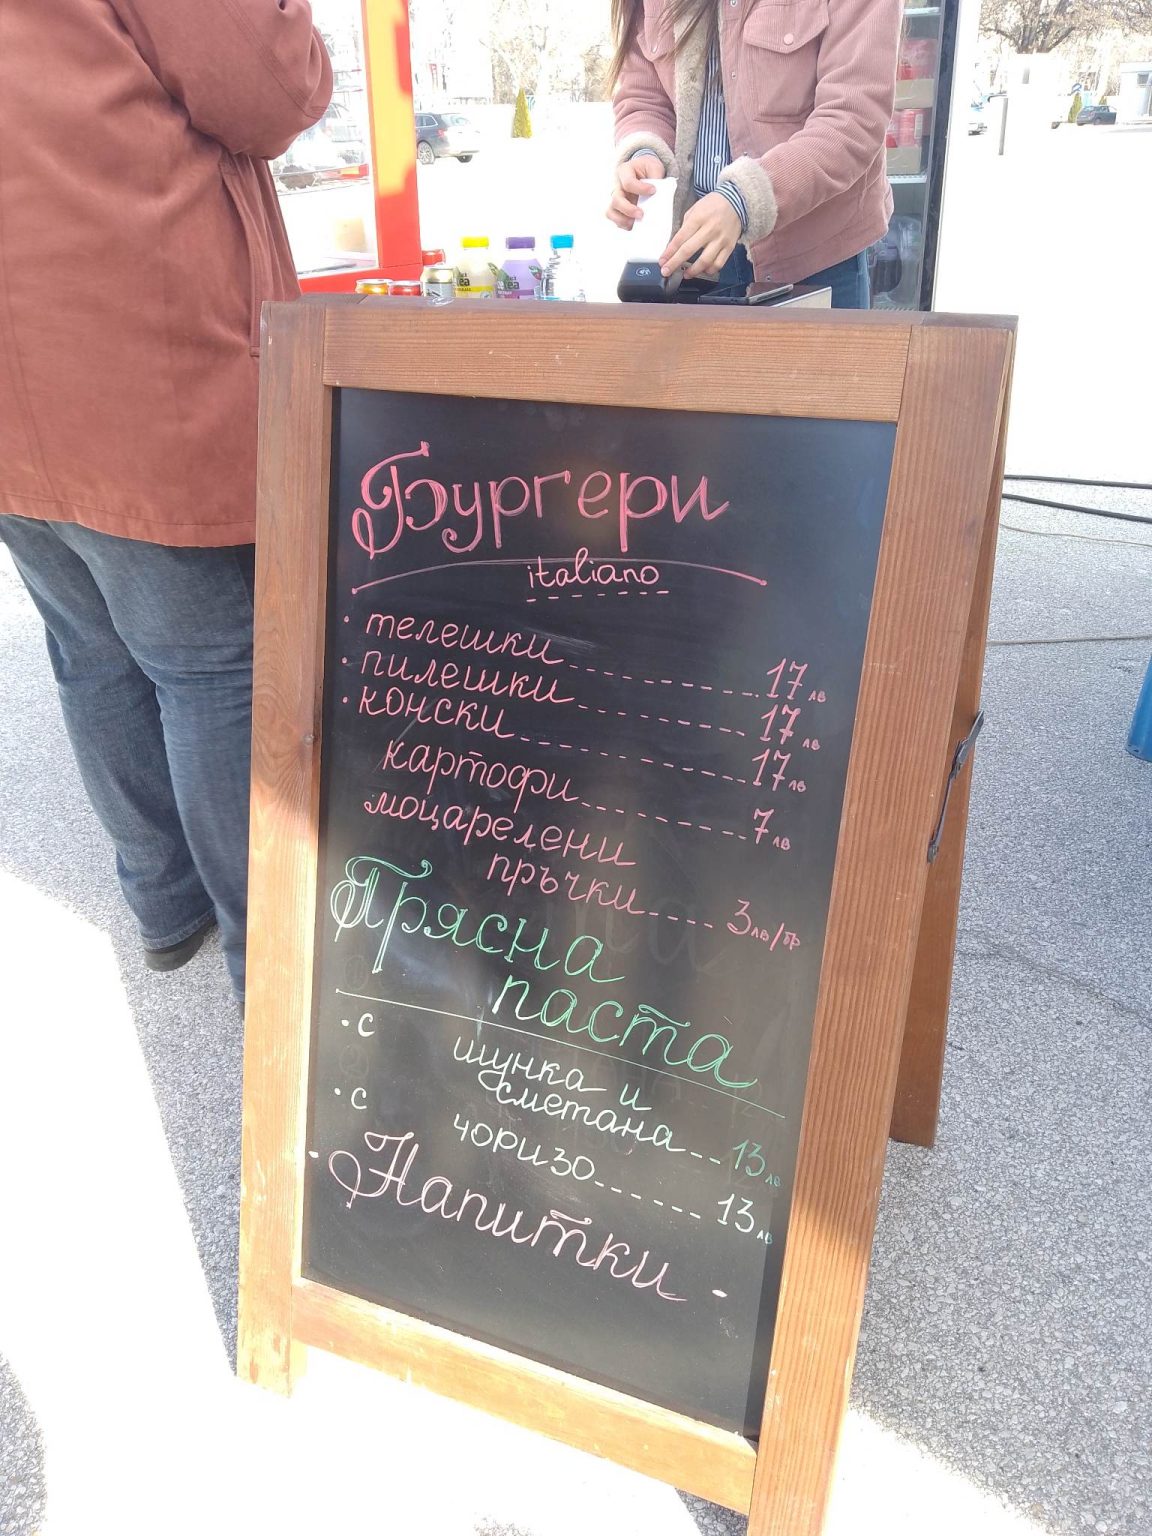 Бургери
italiano
· телешки 17 лв
· пилешки 17 лв
· конски 17 лв
картофи 7 лв
моцарелени
пръчки 3 лв/бр
Прясна
паста
· с шунка и
сметана 13 лв
· с чоризо 13 лв
· Напитки ·